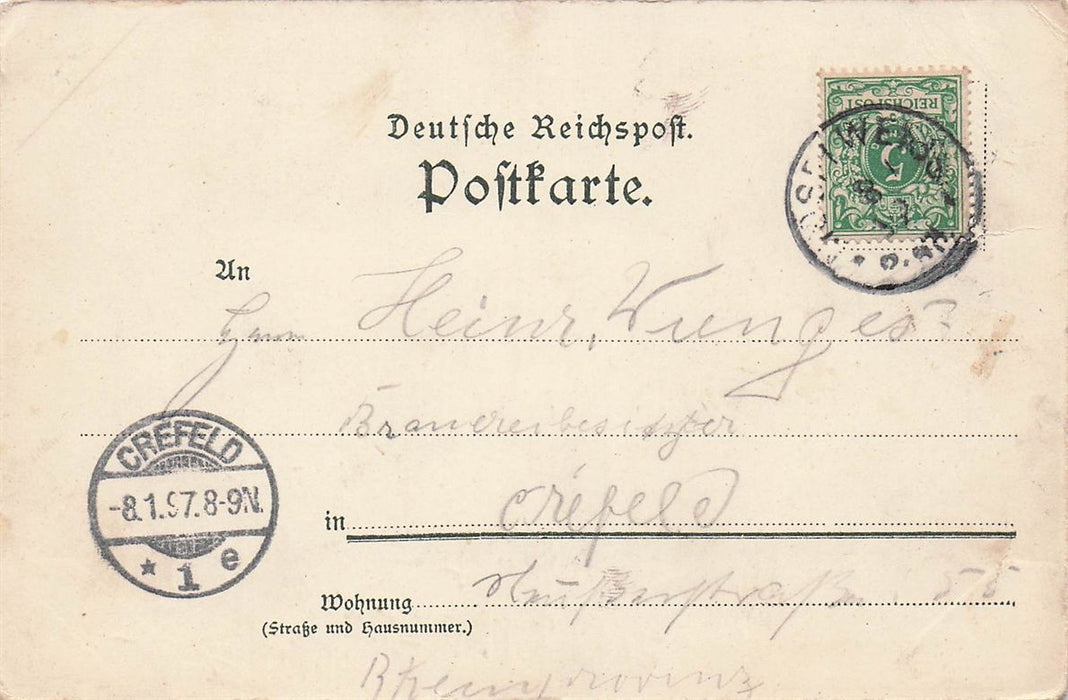 Deutsche Reichspost.
Postkarte.
REICHSPOST
5
An
Herrn Heinr. Wunges
Brauereibesitzer
CREFELD
-8.1.97.8-9N.
* 1 e
in Crefeld
Wohnung 55
(Straße und Hausnummer.)
Rheinprovinz